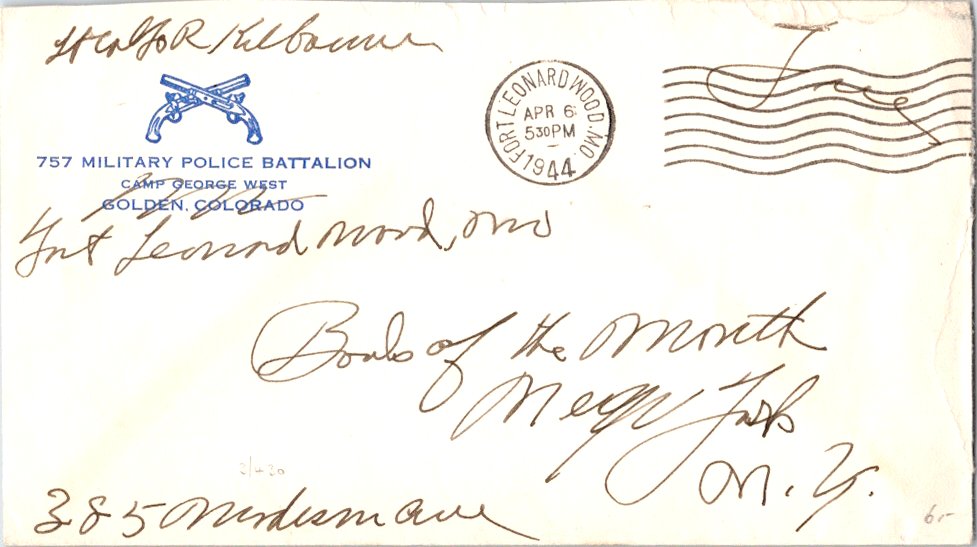 Lt Col Jo R Kilbourne
757 MILITARY POLICE BATTALION
CAMP GEORGE WEST
GOLDEN, COLORADO
Fort Leonard Wood, Mo
FORT LEONARD WOOD, MO.
APR 6
5 30 PM
1944
Free
Book of the Month
New York
N. Y.
385 Madison Ave
6-